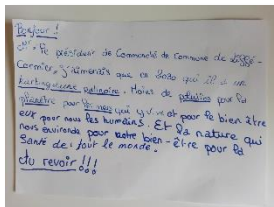 Bonjour !
Mr. Le président de Communauté de Commune de
Cormier, j'aimerais que en 2020 qui il a un
karting, une patinoire. Moins de pollution pour la
planète pour les mers qui y vivent pour le bien être
eux pour nous les humains. Et la nature qui
nous environne pour notre bien-être pour la
Santé de tout le monde.
Au revoir !!!